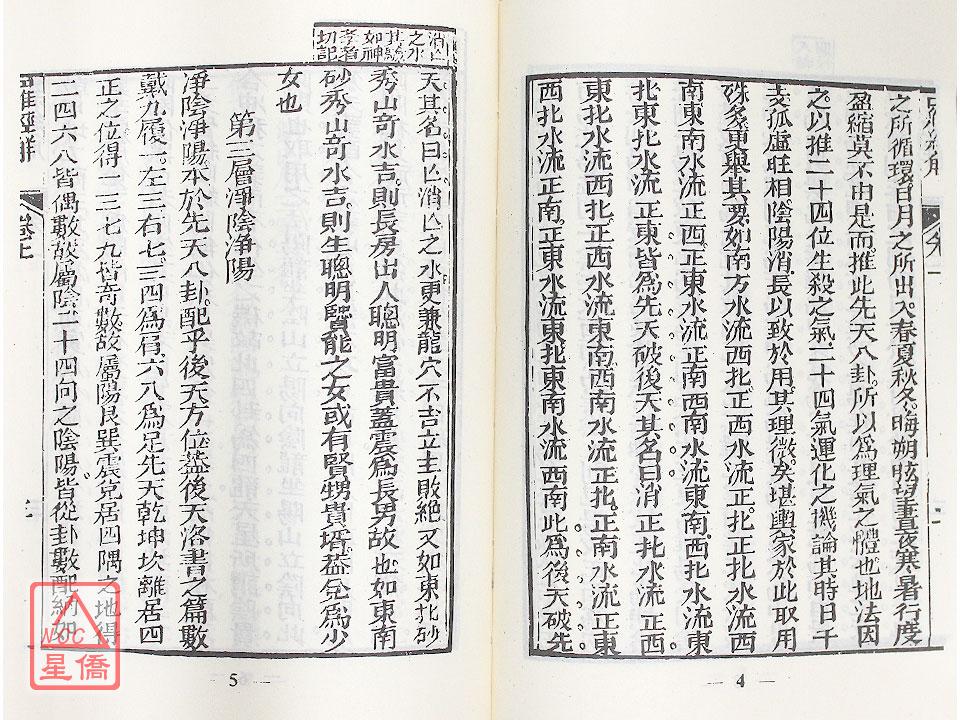 之所循環日月之所出入春夏秋冬晦朔眩望晝夜寒暑行度
盈縮莫不由是而推此先天八卦所以為理氣之體也地法因
之以推二十四位生殺之氣二十四氣運化之機論其時日干
支孤虛旺相陰陽消長以致於用其理微矣堪輿家於此取用
殊多畧舉其要如南方水流西北正西水流正北正北水流
東南水流正西正東水流正南東南水流東南西北水流東
北東北水流正東皆為先天破後天其名曰消正北水流正西
東北水流西北正西水流東南西南水流正北正南水流正東
西北水流正南正東水流東北東南水流西南此為後天破先
天其名曰亾消亾之水更兼龍穴不吉立主敗絶又如東北砂
秀山奇水吉則長房出人聰明富貴蓋震為長男故也如東南
砂秀山奇水吉則生聰明賢能之女或有賢甥貴壻蓋兌為少
女也
消亾
之水
其驗
如神
學者
切記
第三層淨陰淨陽
淨陰淨陽本於先天八卦配乎後天方位蓋後天洛書之篇數
戴九履一左三右七二四為肩六八為足先天乾坤坎離居四
正之位得一三七九皆奇數故屬陽艮巽震兌居四隅之地得
二四六八皆偶數故屬陰二十四向之陰陽皆從卦數配納如
羅經解
卷上
4
5
WSC
星僑